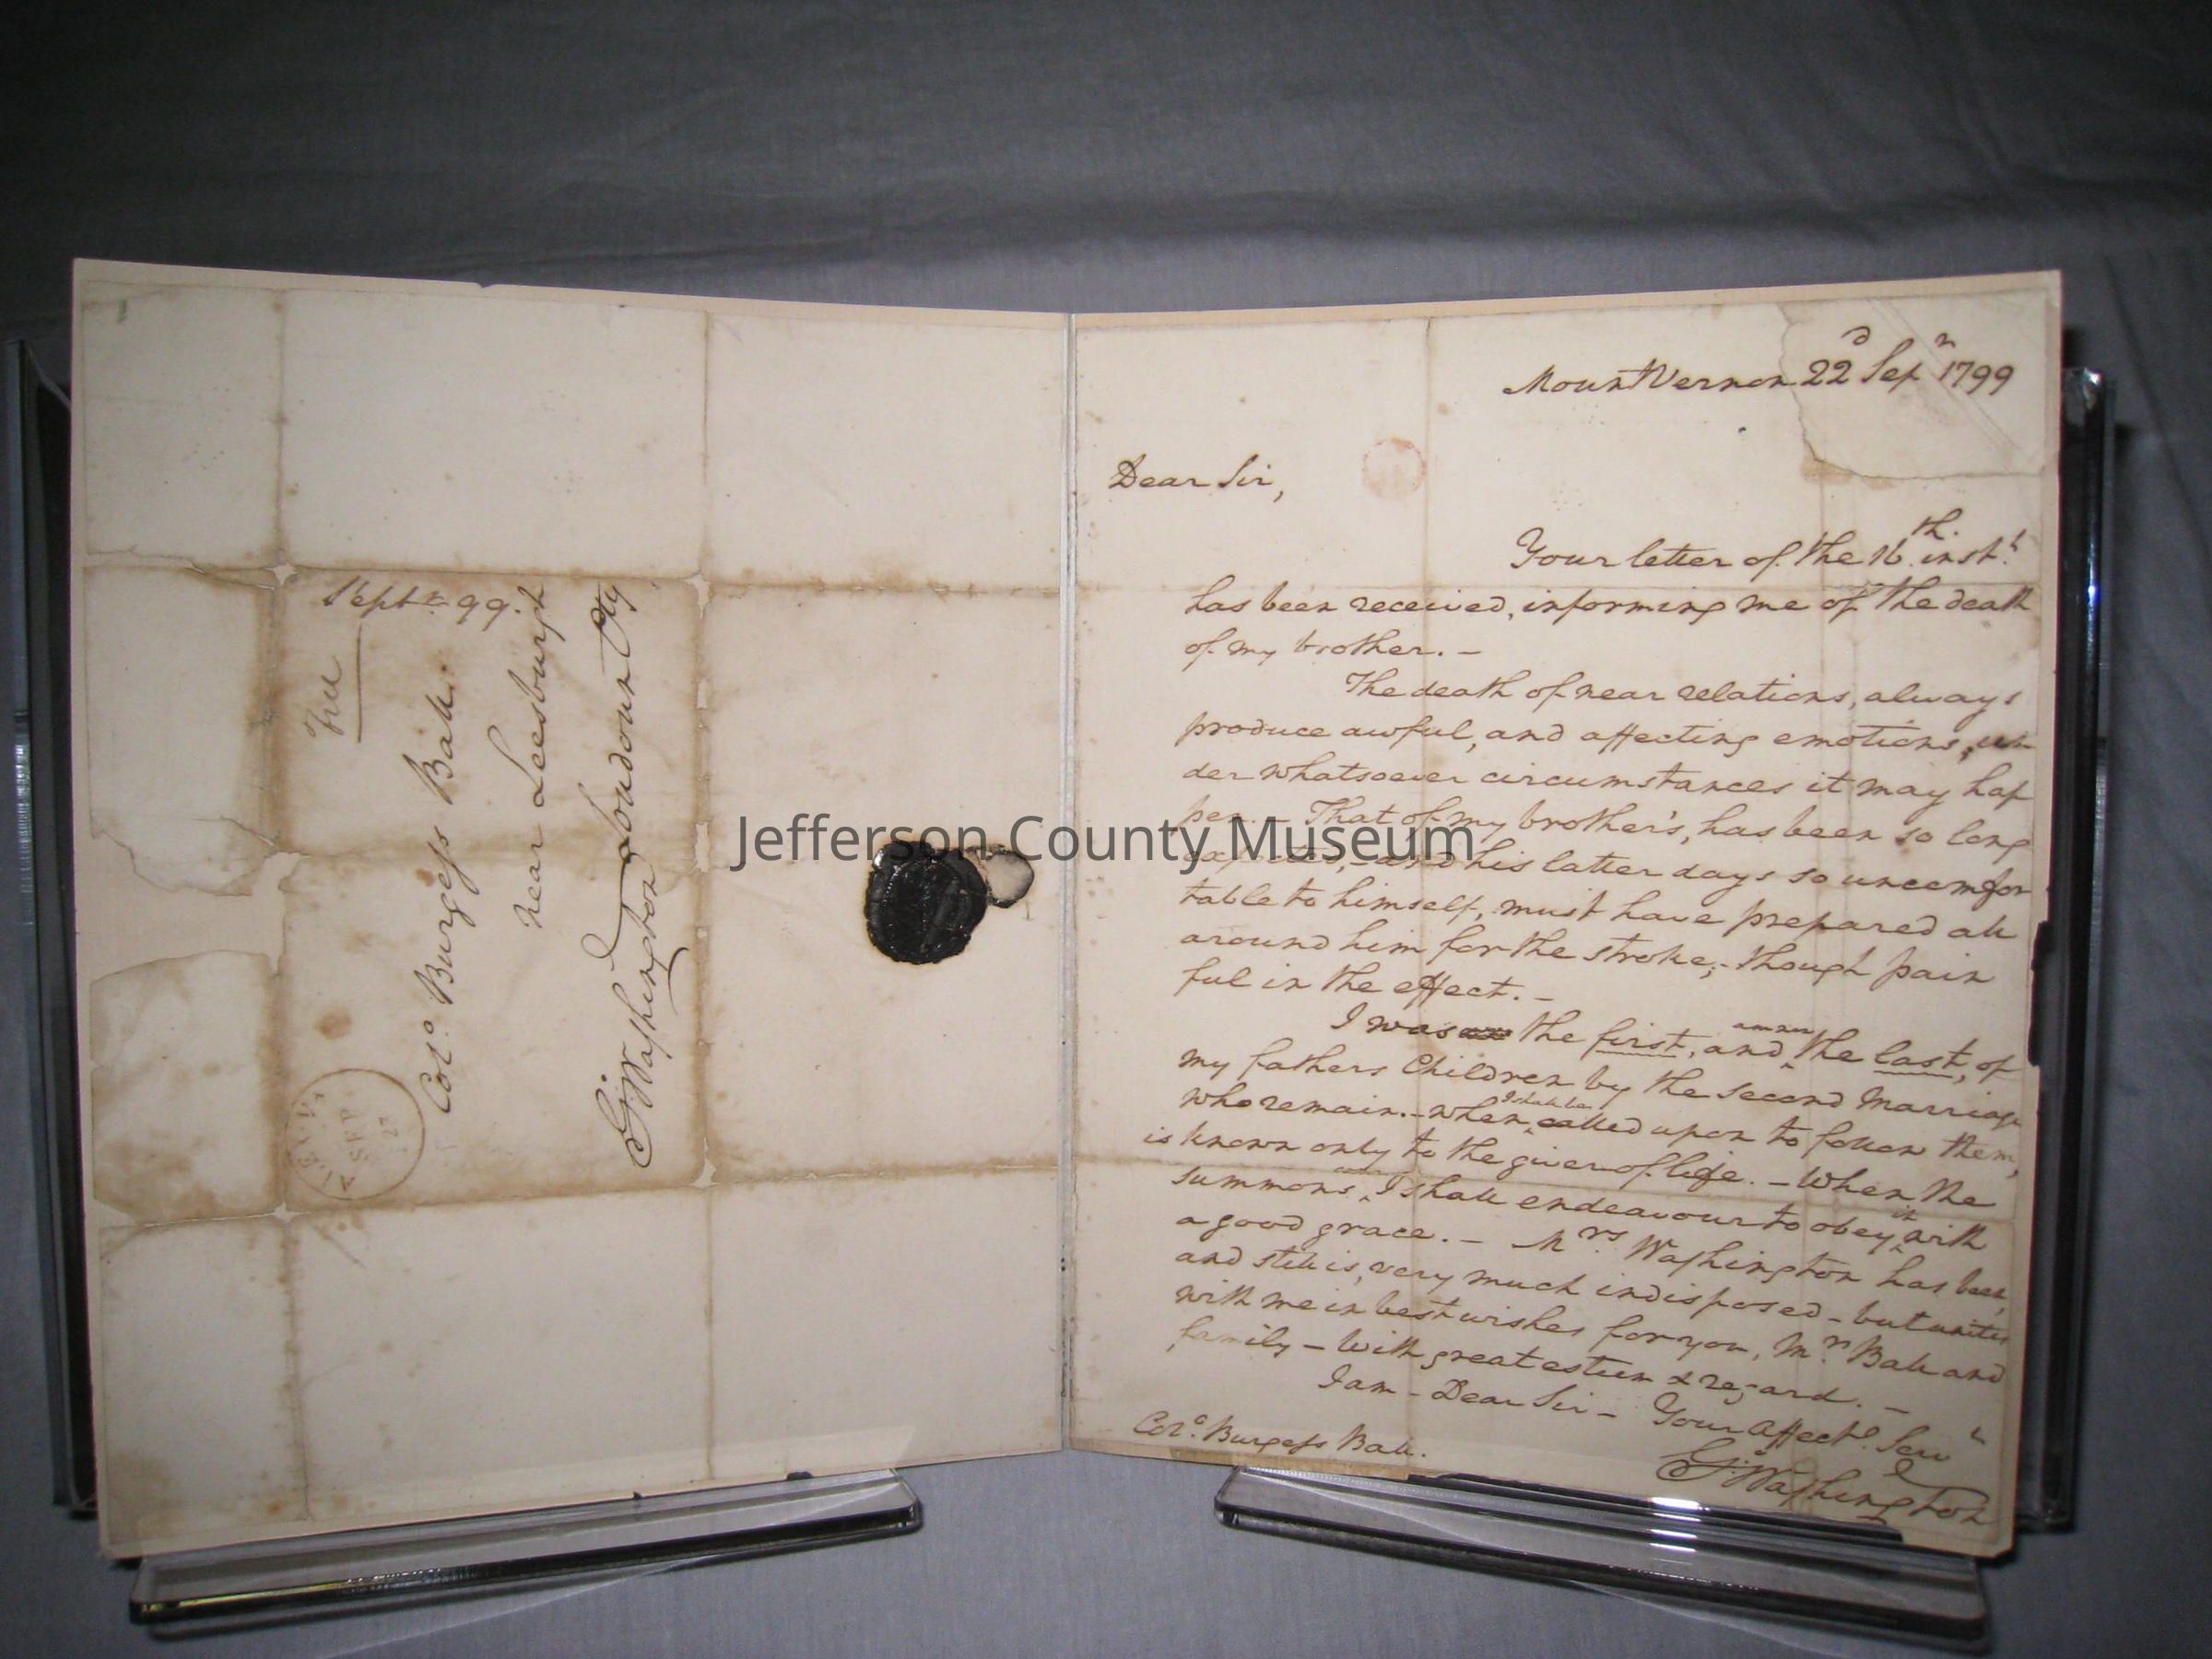 Sept.r 99.
Free
Col.o Burgess Ball.
near Leesburgh
Loudoun Cty
G:Washington
SEP
Jefferson County Museum
Mount Vernon 22d Sepr 1799
Dear Sir,
Your letter of the 16.th instt.
has been received, informing me of the death
of my brother. –
The death of near relations, always
produce awful, and affecting emotions, un
der whatsoever circumstances it may hap
pen. – That of my brother's, has been so long
expected, – and his latter days so uncomfor
table to himself, must have prepared all
around him for the stroke; – though pain
ful in the effect. –
I was the first, and am now the last, of
my fathers Children by the second Marriage
who remain. – when I shall be called upon to follow them,
is known only to the giver of life. – When the
summons comes I shall endeavour to obey it with
a good grace. – Mrs. Washington has been,
and still is, very much indisposed – but unites
with me in best wishes for you, Mrs. Ball and
family – With great esteem & regard. –
I am – Dear Sir – Your Affecte. Servt
G:Washington
Colo. Burgess Ball.